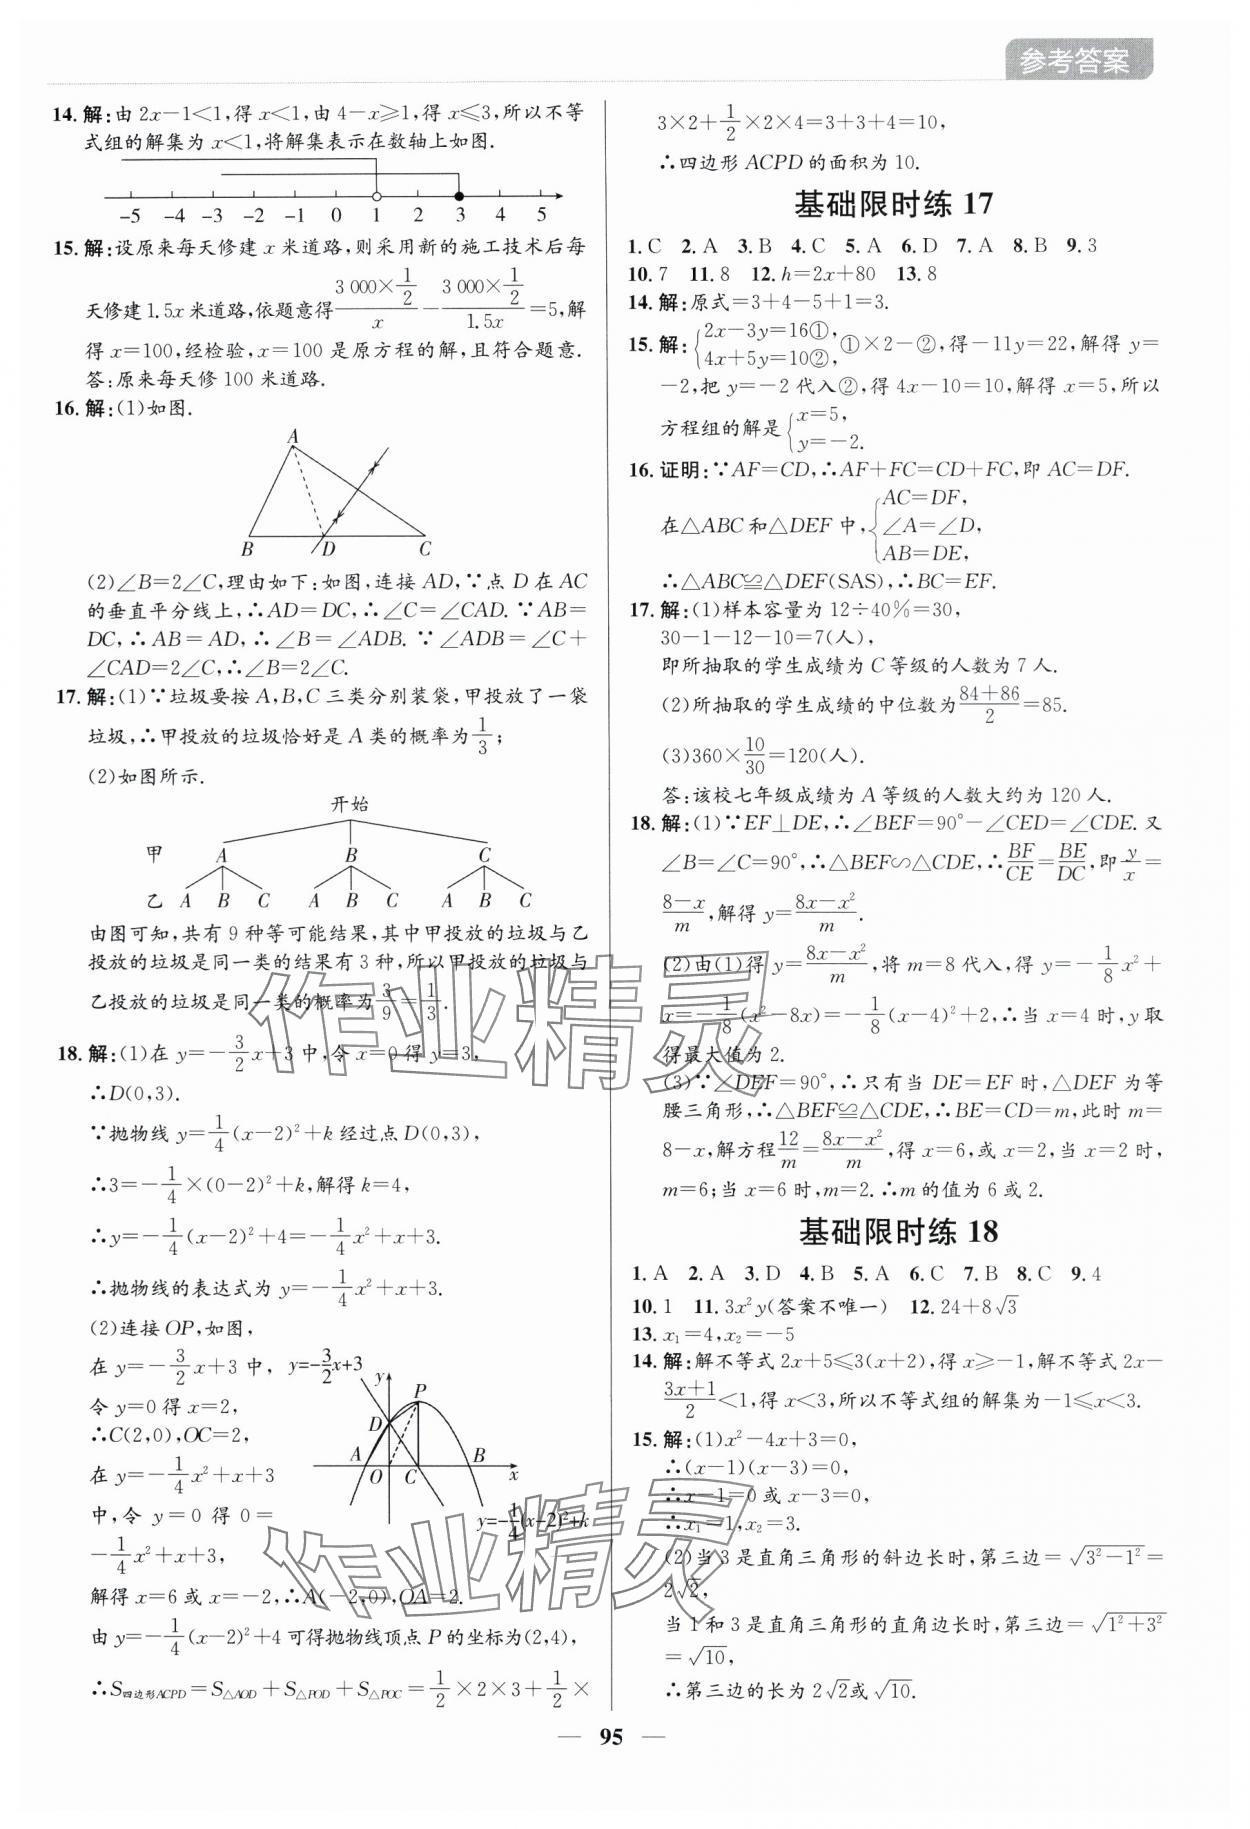 参考答案
14.解:由 2x−1<1,得 x<1,由 4−x≥1,得 x≤3,所以不等
式组的解集为 x<1,将解集表示在数轴上如图.
−5 −4 −3 −2 −1 0 1 2 3 4 5
15.解:设原来每天修建 x 米道路,则采用新的施工技术后每
天修建 1.5x 米道路,依题意得 (3 000×1/2)/x − (3 000×1/2)/1.5x =5,解
得 x=100,经检验,x=100 是原方程的解,且符合题意.
答:原来每天修 100 米道路.
16.解:(1)如图.
A
B D C
(2)∠B=2∠C,理由如下:如图,连接 AD,∵点 D 在 AC
的垂直平分线上,∴AD=DC,∴∠C=∠CAD. ∵AB=
DC,∴AB=AD,∴∠B=∠ADB. ∵∠ADB=∠C+
∠CAD=2∠C,∴∠B=2∠C.
17.解:(1)∵垃圾要按 A,B,C 三类分别装袋,甲投放了一袋
垃圾,∴甲投放的垃圾恰好是 A 类的概率为 1/3;
(2)如图所示.
开始
甲 A B C
乙 A B C A B C A B C
由图可知,共有 9 种等可能结果,其中甲投放的垃圾与乙
投放的垃圾是同一类的结果有 3 种,所以甲投放的垃圾与
乙投放的垃圾是同一类的概率为 3/9=1/3.
18.解:(1)在 y=−3/2x+3 中,令 x=0 得 y=3,
∴D(0,3).
∵抛物线 y=1/4(x−2)²+k 经过点 D(0,3),
∴3=−1/4×(0−2)²+k,解得 k=4,
∴y=−1/4(x−2)²+4=−1/4x²+x+3.
∴抛物线的表达式为 y=−1/4x²+x+3.
(2)连接 OP,如图,
在 y=−3/2x+3 中,
令 y=0 得 x=2,
∴C(2,0),OC=2,
在 y=−1/4x²+x+3
中,令 y=0 得 0=
−1/4x²+x+3,
y=−3/2x+3
y
P
D
A B
O C x
y=−1/4(x−2)²+k
解得 x=6 或 x=−2,∴A(−2,0),OA=2.
由 y=−1/4(x−2)²+4 可得抛物线顶点 P 的坐标为(2,4),
∴S四边形ACPD=S△AOD+S△POD+S△POC=1/2×2×3+1/2×
3×2+1/2×2×4=3+3+4=10,
∴四边形 ACPD 的面积为 10.
基础限时练 17
1.C 2.A 3.B 4.C 5.A 6.D 7.A 8.B 9.3
10.7 11.8 12.h=2x+80 13.8
14.解:原式=3+4−5+1=3.
15.解:{2x−3y=16①, 4x+5y=10②, ①×2−②,得−11y=22,解得 y=
−2,把 y=−2 代入②,得 4x−10=10,解得 x=5,所以
方程组的解是{x=5, y=−2.
16.证明:∵AF=CD,∴AF+FC=CD+FC,即 AC=DF.
在△ABC 和△DEF 中,{AC=DF, ∠A=∠D, AB=DE,
∴△ABC≌△DEF(SAS),∴BC=EF.
17.解:(1)样本容量为 12÷40%=30,
30−1−12−10=7(人),
即所抽取的学生成绩为 C 等级的人数为 7 人.
(2)所抽取的学生成绩的中位数为 (84+86)/2=85.
(3)360×10/30=120(人).
答:该校七年级成绩为 A 等级的人数大约为 120 人.
18.解:(1)∵EF⊥DE,∴∠BEF=90°−∠CED=∠CDE. 又
∠B=∠C=90°,∴△BEF∽△CDE,∴BF/CE=BE/DC,即 y/x=
(8−x)/m,解得 y=(8x−x²)/m.
(2)由(1)得 y=(8x−x²)/m,将 m=8 代入,得 y=−1/8x²+
x=−1/8(x²−8x)=−1/8(x−4)²+2,∴当 x=4 时,y 取
得最大值为 2.
(3)∵∠DEF=90°,∴只有当 DE=EF 时,△DEF 为等
腰三角形,∴△BEF≌△CDE,∴BE=CD=m,此时 m=
8−x,解方程 12/m=(8x−x²)/m,得 x=6,或 x=2,当 x=2 时,
m=6;当 x=6 时,m=2. ∴m 的值为 6 或 2.
基础限时练 18
1.A 2.A 3.D 4.B 5.A 6.C 7.B 8.C 9.4
10.1 11.3x²y(答案不唯一) 12.24+8√3
13.x₁=4,x₂=−5
14.解:解不等式 2x+5≤3(x+2),得 x≥−1,解不等式 2x−
(3x+1)/2<1,得 x<3,所以不等式组的解集为−1≤x<3.
15.解:(1)x²−4x+3=0,
∴(x−1)(x−3)=0,
∴x−1=0 或 x−3=0,
∴x₁=1,x₂=3.
(2)当 3 是直角三角形的斜边长时,第三边=√(3²−1²)=
2√2,
当 1 和 3 是直角三角形的直角边长时,第三边=√(1²+3²)
=√10,
∴第三边的长为 2√2或√10.
95
作业精灵
作业精灵